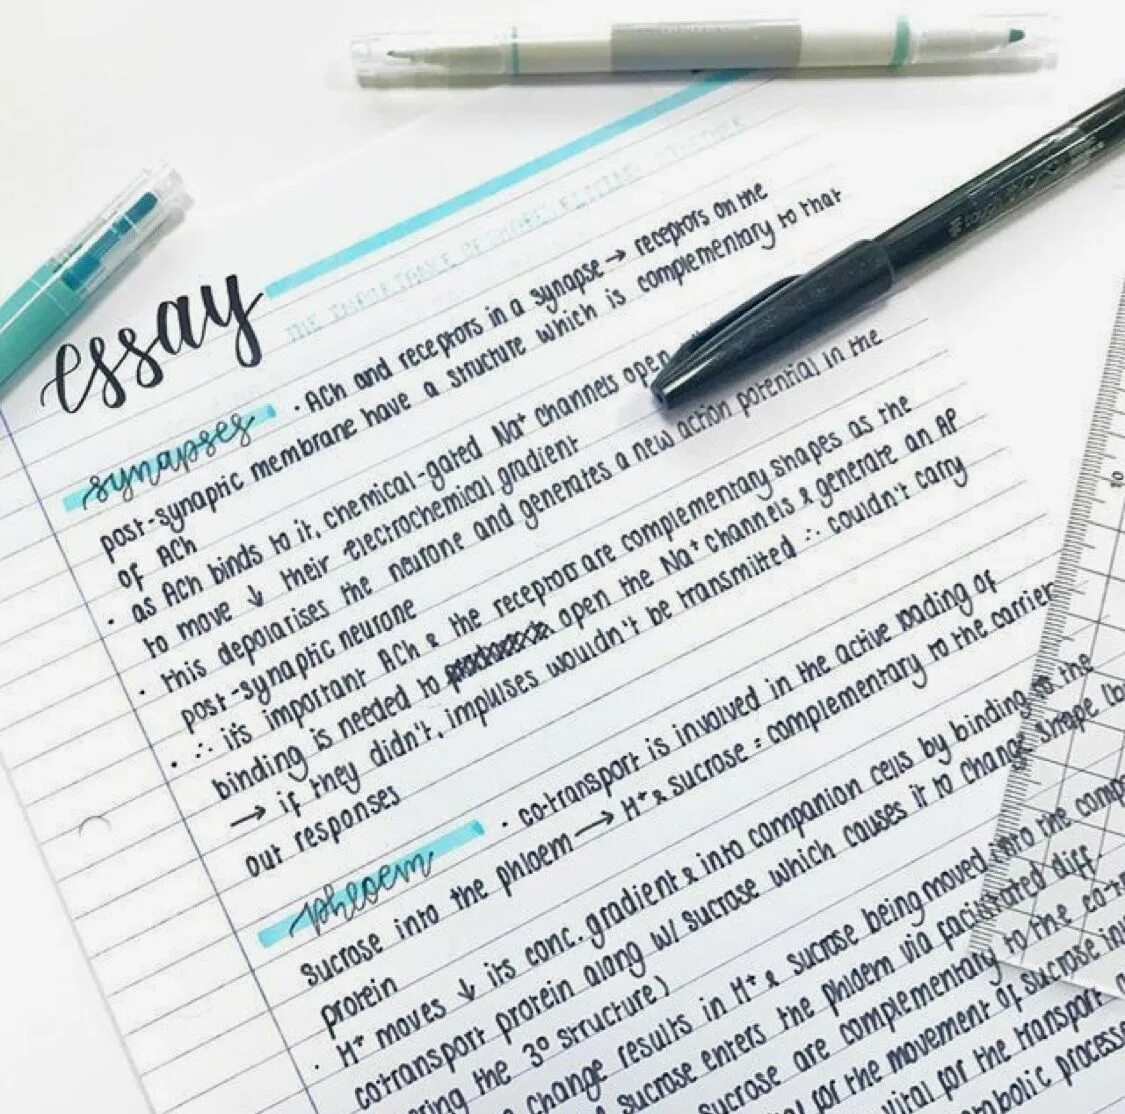 essay
THE IMPORTANCE OF SHAPES FITTING TOGETHER
synapses
· ACh and receptors in a synapse → receptors on the
post-synaptic membrane have a structure which is complementary to that
of ACh
· as ACh binds to it, chemical-gated Na⁺ channels open
to move ↓ their electrochemical gradient
· this depolarises the neurone and generates a new action potential in the
post-synaptic neurone
· ∴ it's important ACh & the receptors are complementary shapes as the
binding is needed to open the Na⁺ channels & generate an AP
→ if they didn't, impulses wouldn't be transmitted ∴ couldn't carry
out responses
phloem
· co-transport is involved in the active loading of
sucrose into the phloem → H⁺ & sucrose = complementary to the carrier
protein
· H⁺ moves ↓ its conc. gradient & into companion cells by binding to the
cotransport protein along w/ sucrose which causes it to change shape
the 3° structure)
change results in H⁺ & sucrose being moved into the
sucrose enters the phloem via facilitated diff.
sucrose are complementary to the
for the movement of sucrose
vital for the transport
processes